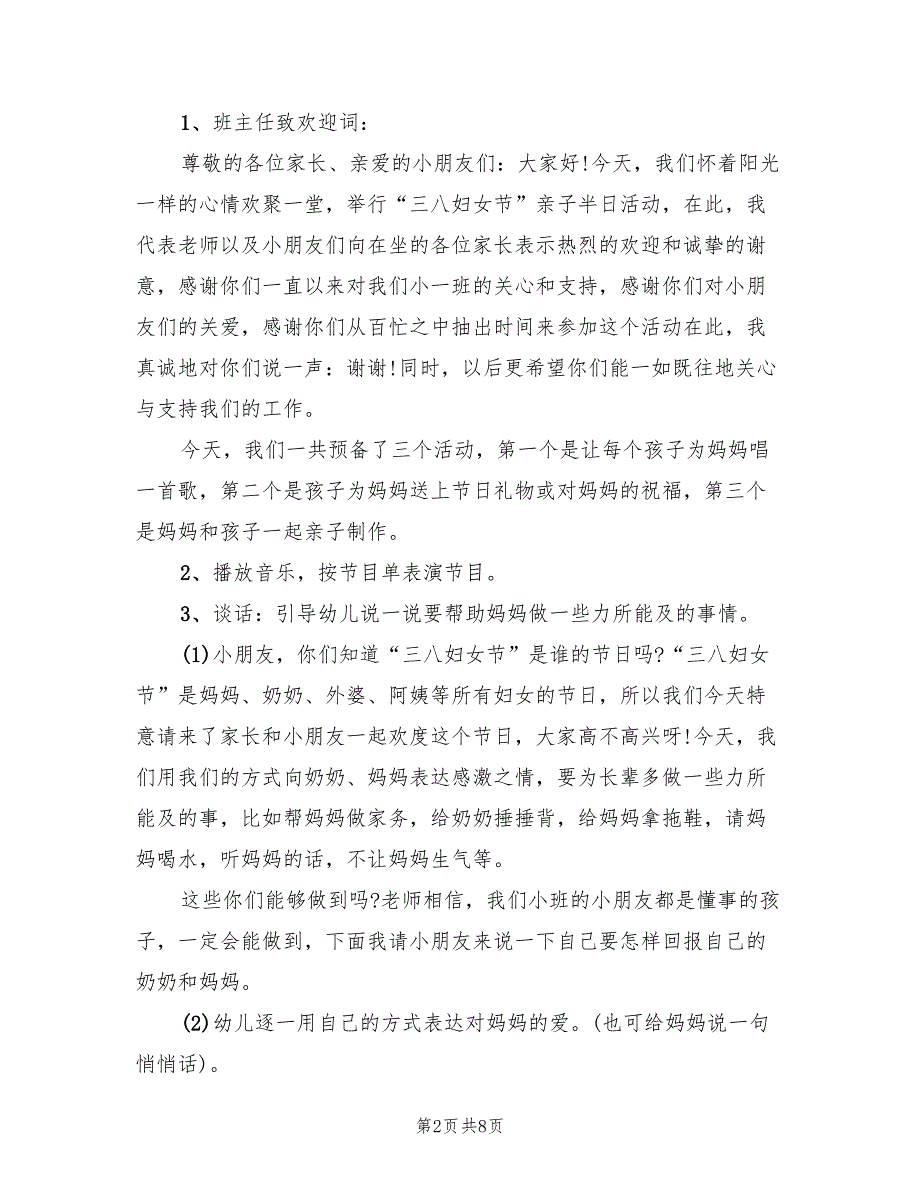 1、班主任致欢迎词：
尊敬的各位家长、亲爱的小朋友们：大家好!今天，我们怀着阳光
一样的心情欢聚一堂，举行“三八妇女节”亲子半日活动，在此，我
代表老师以及小朋友们向在坐的各位家长表示热烈的欢迎和诚挚的谢
意，感谢你们一直以来对我们小一班的关心和支持，感谢你们对小朋
友们的关爱，感谢你们从百忙之中抽出时间来参加这个活动在此，我
真诚地对你们说一声：谢谢!同时，以后更希望你们能一如既往地关心
与支持我们的工作。
今天，我们一共预备了三个活动，第一个是让每个孩子为妈妈唱
一首歌，第二个是孩子为妈妈送上节日礼物或对妈妈的祝福，第三个
是妈妈和孩子一起亲子制作。
2、播放音乐，按节目单表演节目。
3、谈话：引导幼儿说一说要帮助妈妈做一些力所能及的事情。
(1)小朋友，你们知道“三八妇女节”是谁的节日吗?“三八妇女
节”是妈妈、奶奶、外婆、阿姨等所有妇女的节日，所以我们今天特
意请来了家长和小朋友一起欢度这个节日，大家高不高兴呀!今天，我
们用我们的方式向奶奶、妈妈表达感激之情，要为长辈多做一些力所
能及的事，比如帮妈妈做家务，给奶奶捶捶背，给妈妈拿拖鞋，请妈
妈喝水，听妈妈的话，不让妈妈生气等。
这些你们能够做到吗?老师相信，我们小班的小朋友都是懂事的孩
子，一定会能做到，下面我请小朋友来说一下自己要怎样回报自己的
奶奶和妈妈。
(2)幼儿逐一用自己的方式表达对妈妈的爱。(也可给妈妈说一句
悄悄话)。
第2页 共8页